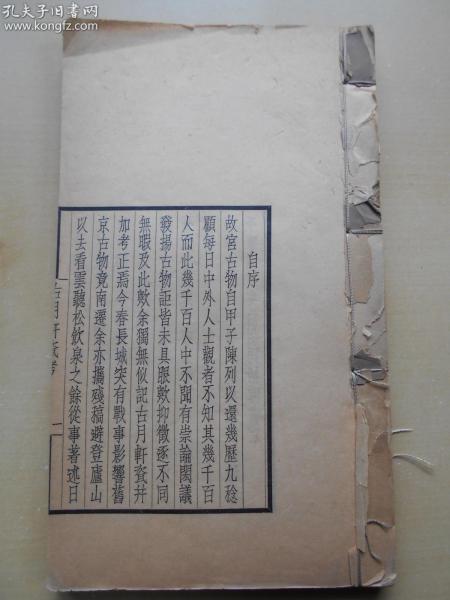 孔夫子旧书网
www.kongfz.com
自序
故宮古物自甲子陳列以還幾歷九稔
顧每日中外人士觀者不知其幾千百
人而此幾千百人中不聞有崇論閎議
發揚古物詎皆未具眼歟抑徵逐不同
無暇及此歟余獨無似記古月軒瓷并
加考正焉今春長城突有戰事影響舊
京古物竟南遷余亦攜殘稿避登廬山
以去看雲聽松飲泉之餘從事著述日
古月軒瓷考
一